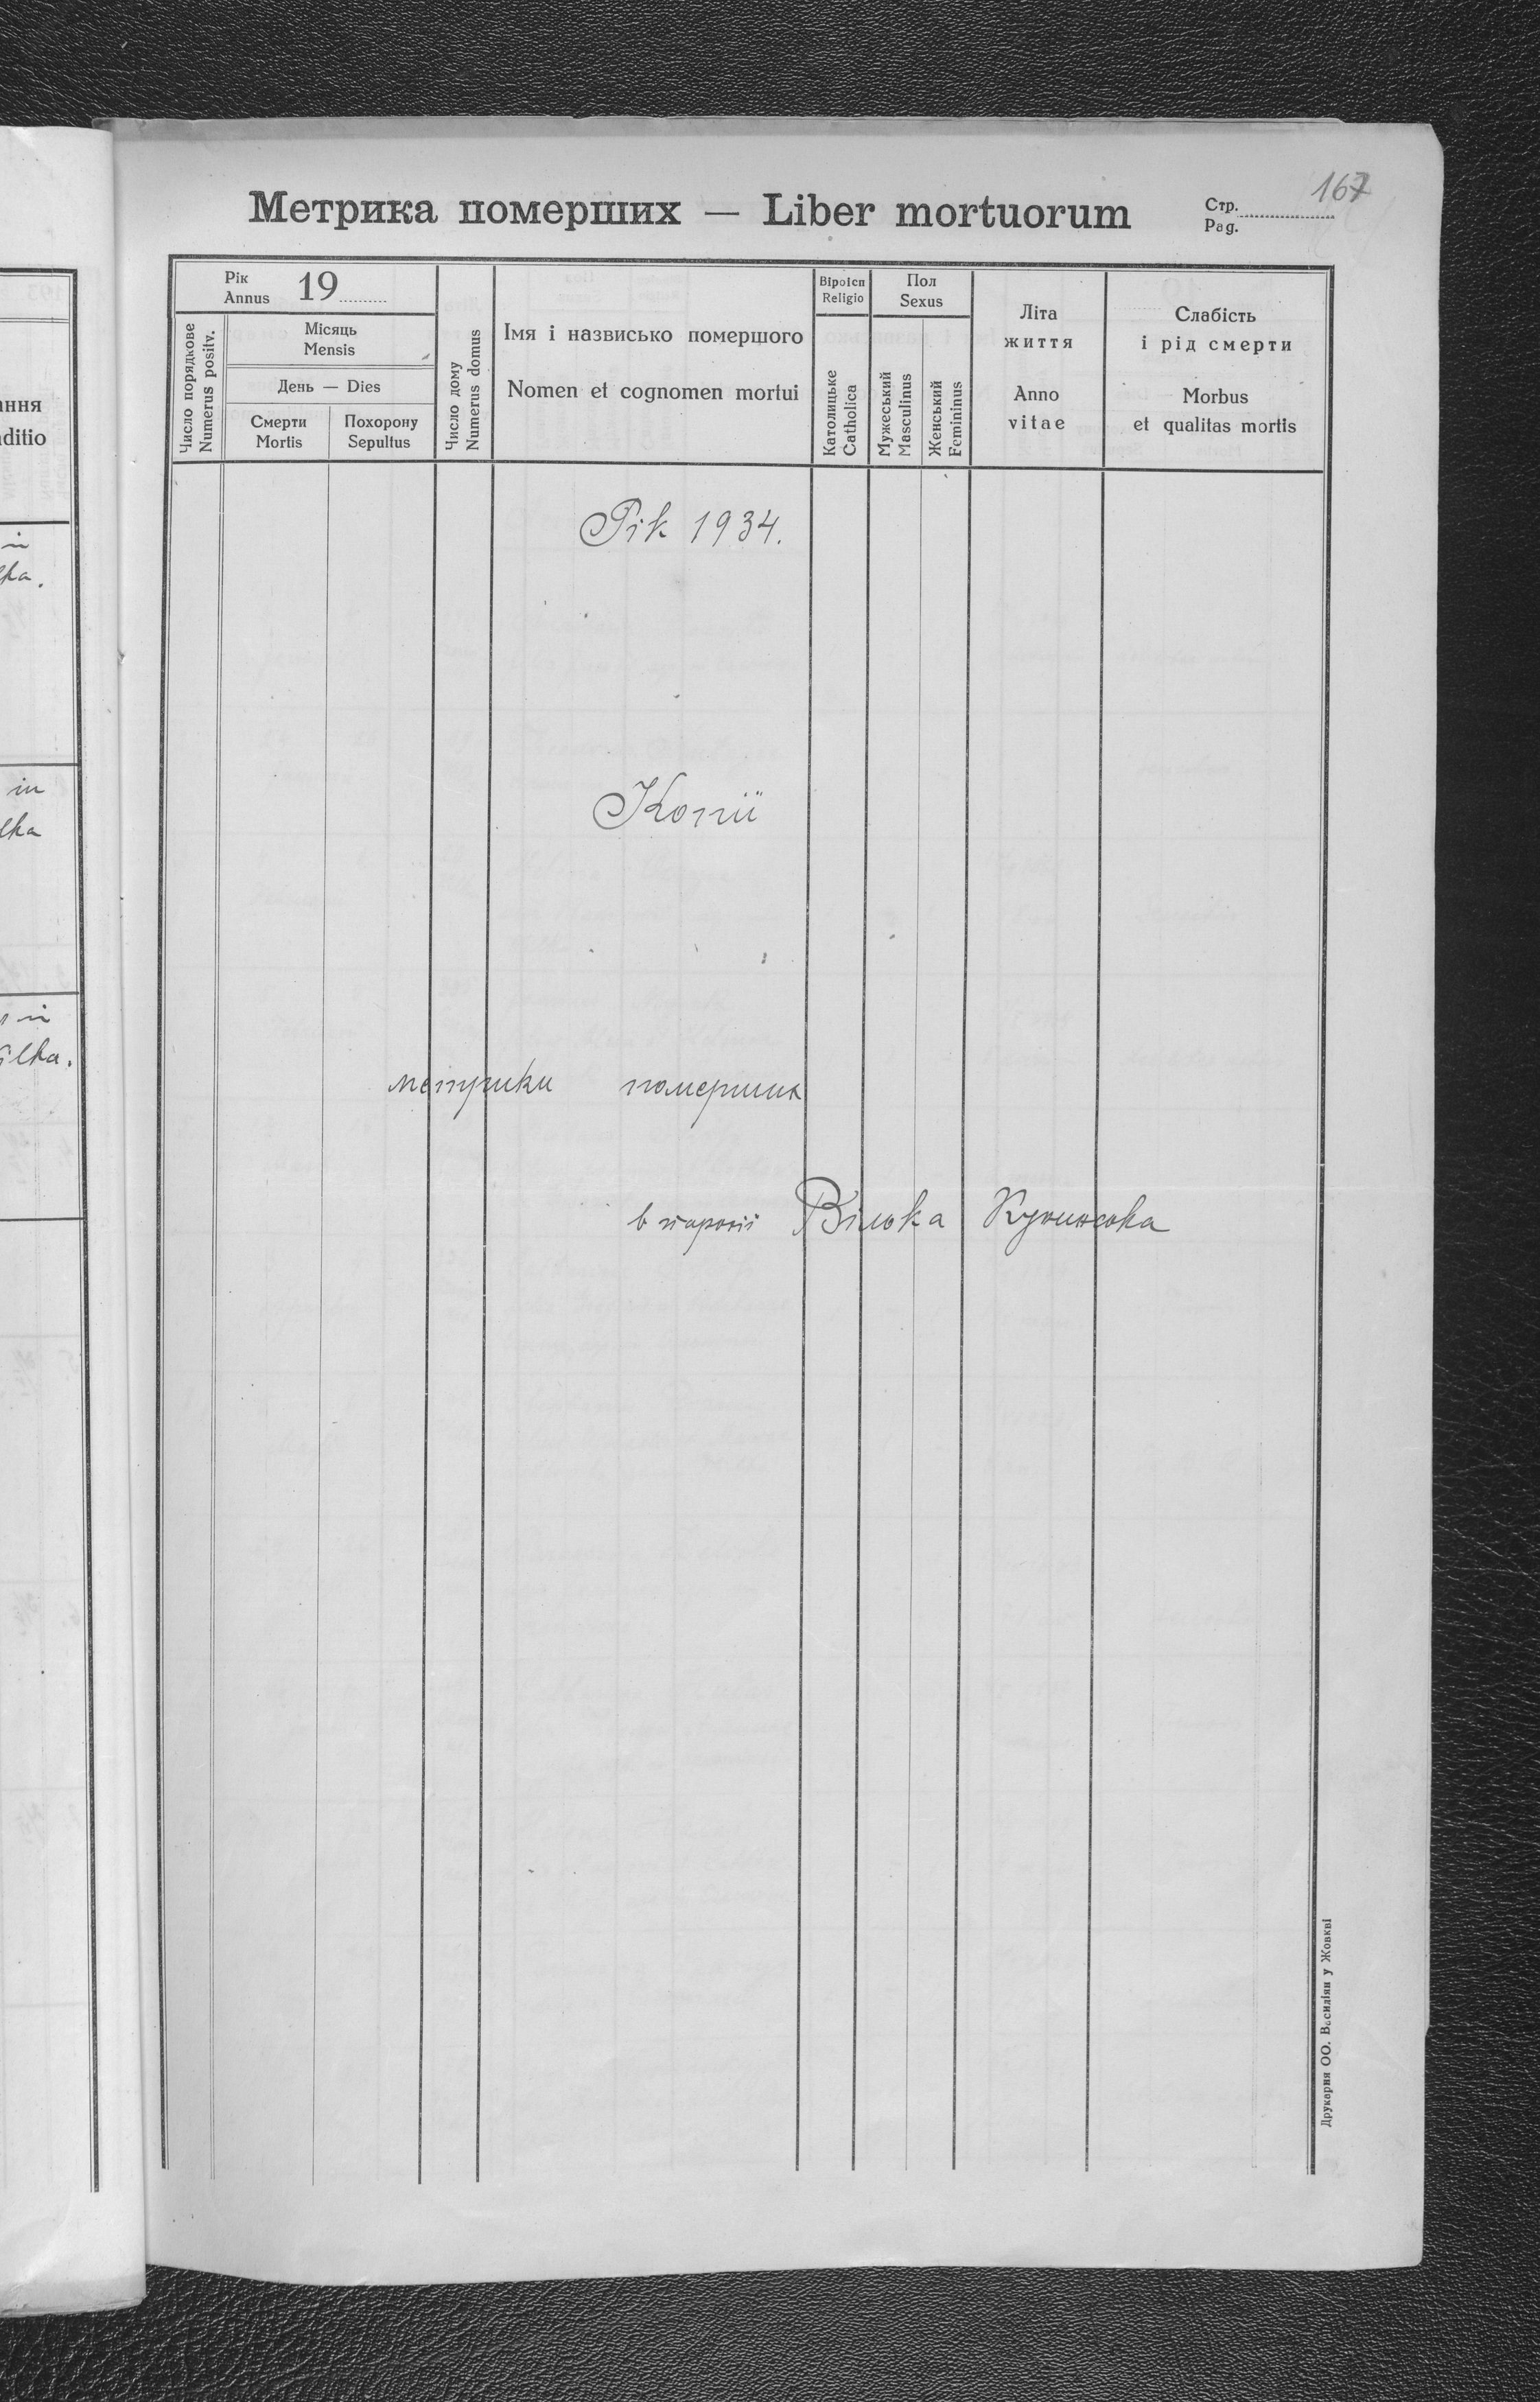 167
Метрика померших — Liber mortuorum
Стр.
Pag.
Рік
Annus 19
Число порядкове
Numerus positv.
Місяць
Mensis
День — Dies
Смерти
Mortis
Похорону
Sepultus
Число дому
Numerus domus
Імя і назвисько помершого
Nomen et cognomen mortui
Religio
Католицьке
Catholica
Пол
Sexus
Мужеський
Masculinus
Женський
Femininus
Літа
життя
Anno
vitae
Слабість
і рід смерти
Morbus
et qualitas mortis
Рік 1934.
Копії
метрики померших
в парохії Вілька
Друкарня ОО. Василіян у Жовкві
ання
ditio
in
lka.
in
lka
in
ilka.